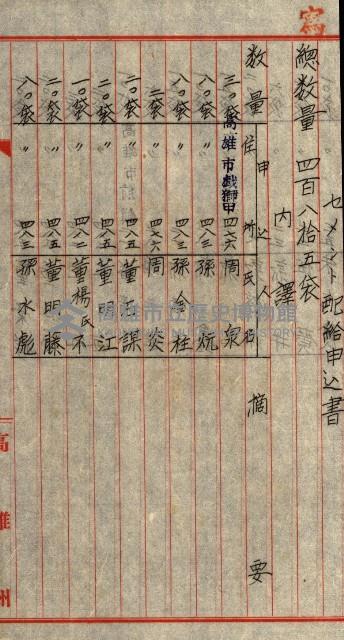 寫
セメント配給申込書
總数量 四百八拾五袋
内譯
数量 申込人 住所 氏名 摘要
三〇袋 高雄市戯獅甲 四七六 周泉
八〇袋 〃 四八三 孫炕
八〇袋 〃 四八三 孫合柱
二袋 〃 四七六 周炎
二〇袋 〃 四八五 董石謀
二〇袋 〃 四八三 董江
一〇袋 〃 四八二 董楊氏不
二〇袋 〃 四八五 董明藤
八〇袋 〃 四八三 孫水彪
高雄州
高雄市立歷史博物館